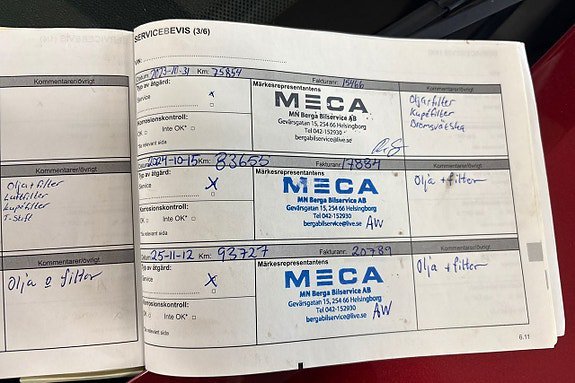 SERVICEBEVIS (3/6)
VIN:
Kommentarer/övrigt
Olja+filter
Luftfilter
Kupéfilter
T-Stift
Kommentarer/övrigt
Olja o filter
Datum: 2023-10-31 Km: 75854 Fakturanr: 15466
Typ av åtgärd:
Service
x
Korrosionskontroll:
OK Inte OK*
*Se relevant sida
Märkesrepresentantens
MECA
MN Berga Bilservice AB
Gevärsgatan 15, 254 66 Helsingborg
Tel 042-152930
bergabilservice@live.se
Kommentarer/övrigt
Olja+filter
Kupéfilter
Bromsvätska
Datum: 2024-10-15 Km: 83655 Fakturanr: 17884
Typ av åtgärd:
Service
X
Korrosionskontroll:
OK Inte OK*
*Se relevant sida
Märkesrepresentantens
MECA
MN Berga Bilservice AB
Gevärsgatan 15, 254 66 Helsingborg
Tel 042-152930
bergabilservice@live.se
AW
Kommentarer/övrigt
Olja + filter
Datum: 25-11-12 Km: 93727 Fakturanr: 20789
Typ av åtgärd:
Service
X
Korrosionskontroll:
OK Inte OK*
*Se relevant sida
Märkesrepresentantens
MECA
MN Berga Bilservice AB
Gevärsgatan 15, 254 66 Helsingborg
Tel 042-152930
bergabilservice@live.se
AW
Kommentarer/övrigt
Olja + filter
6.11